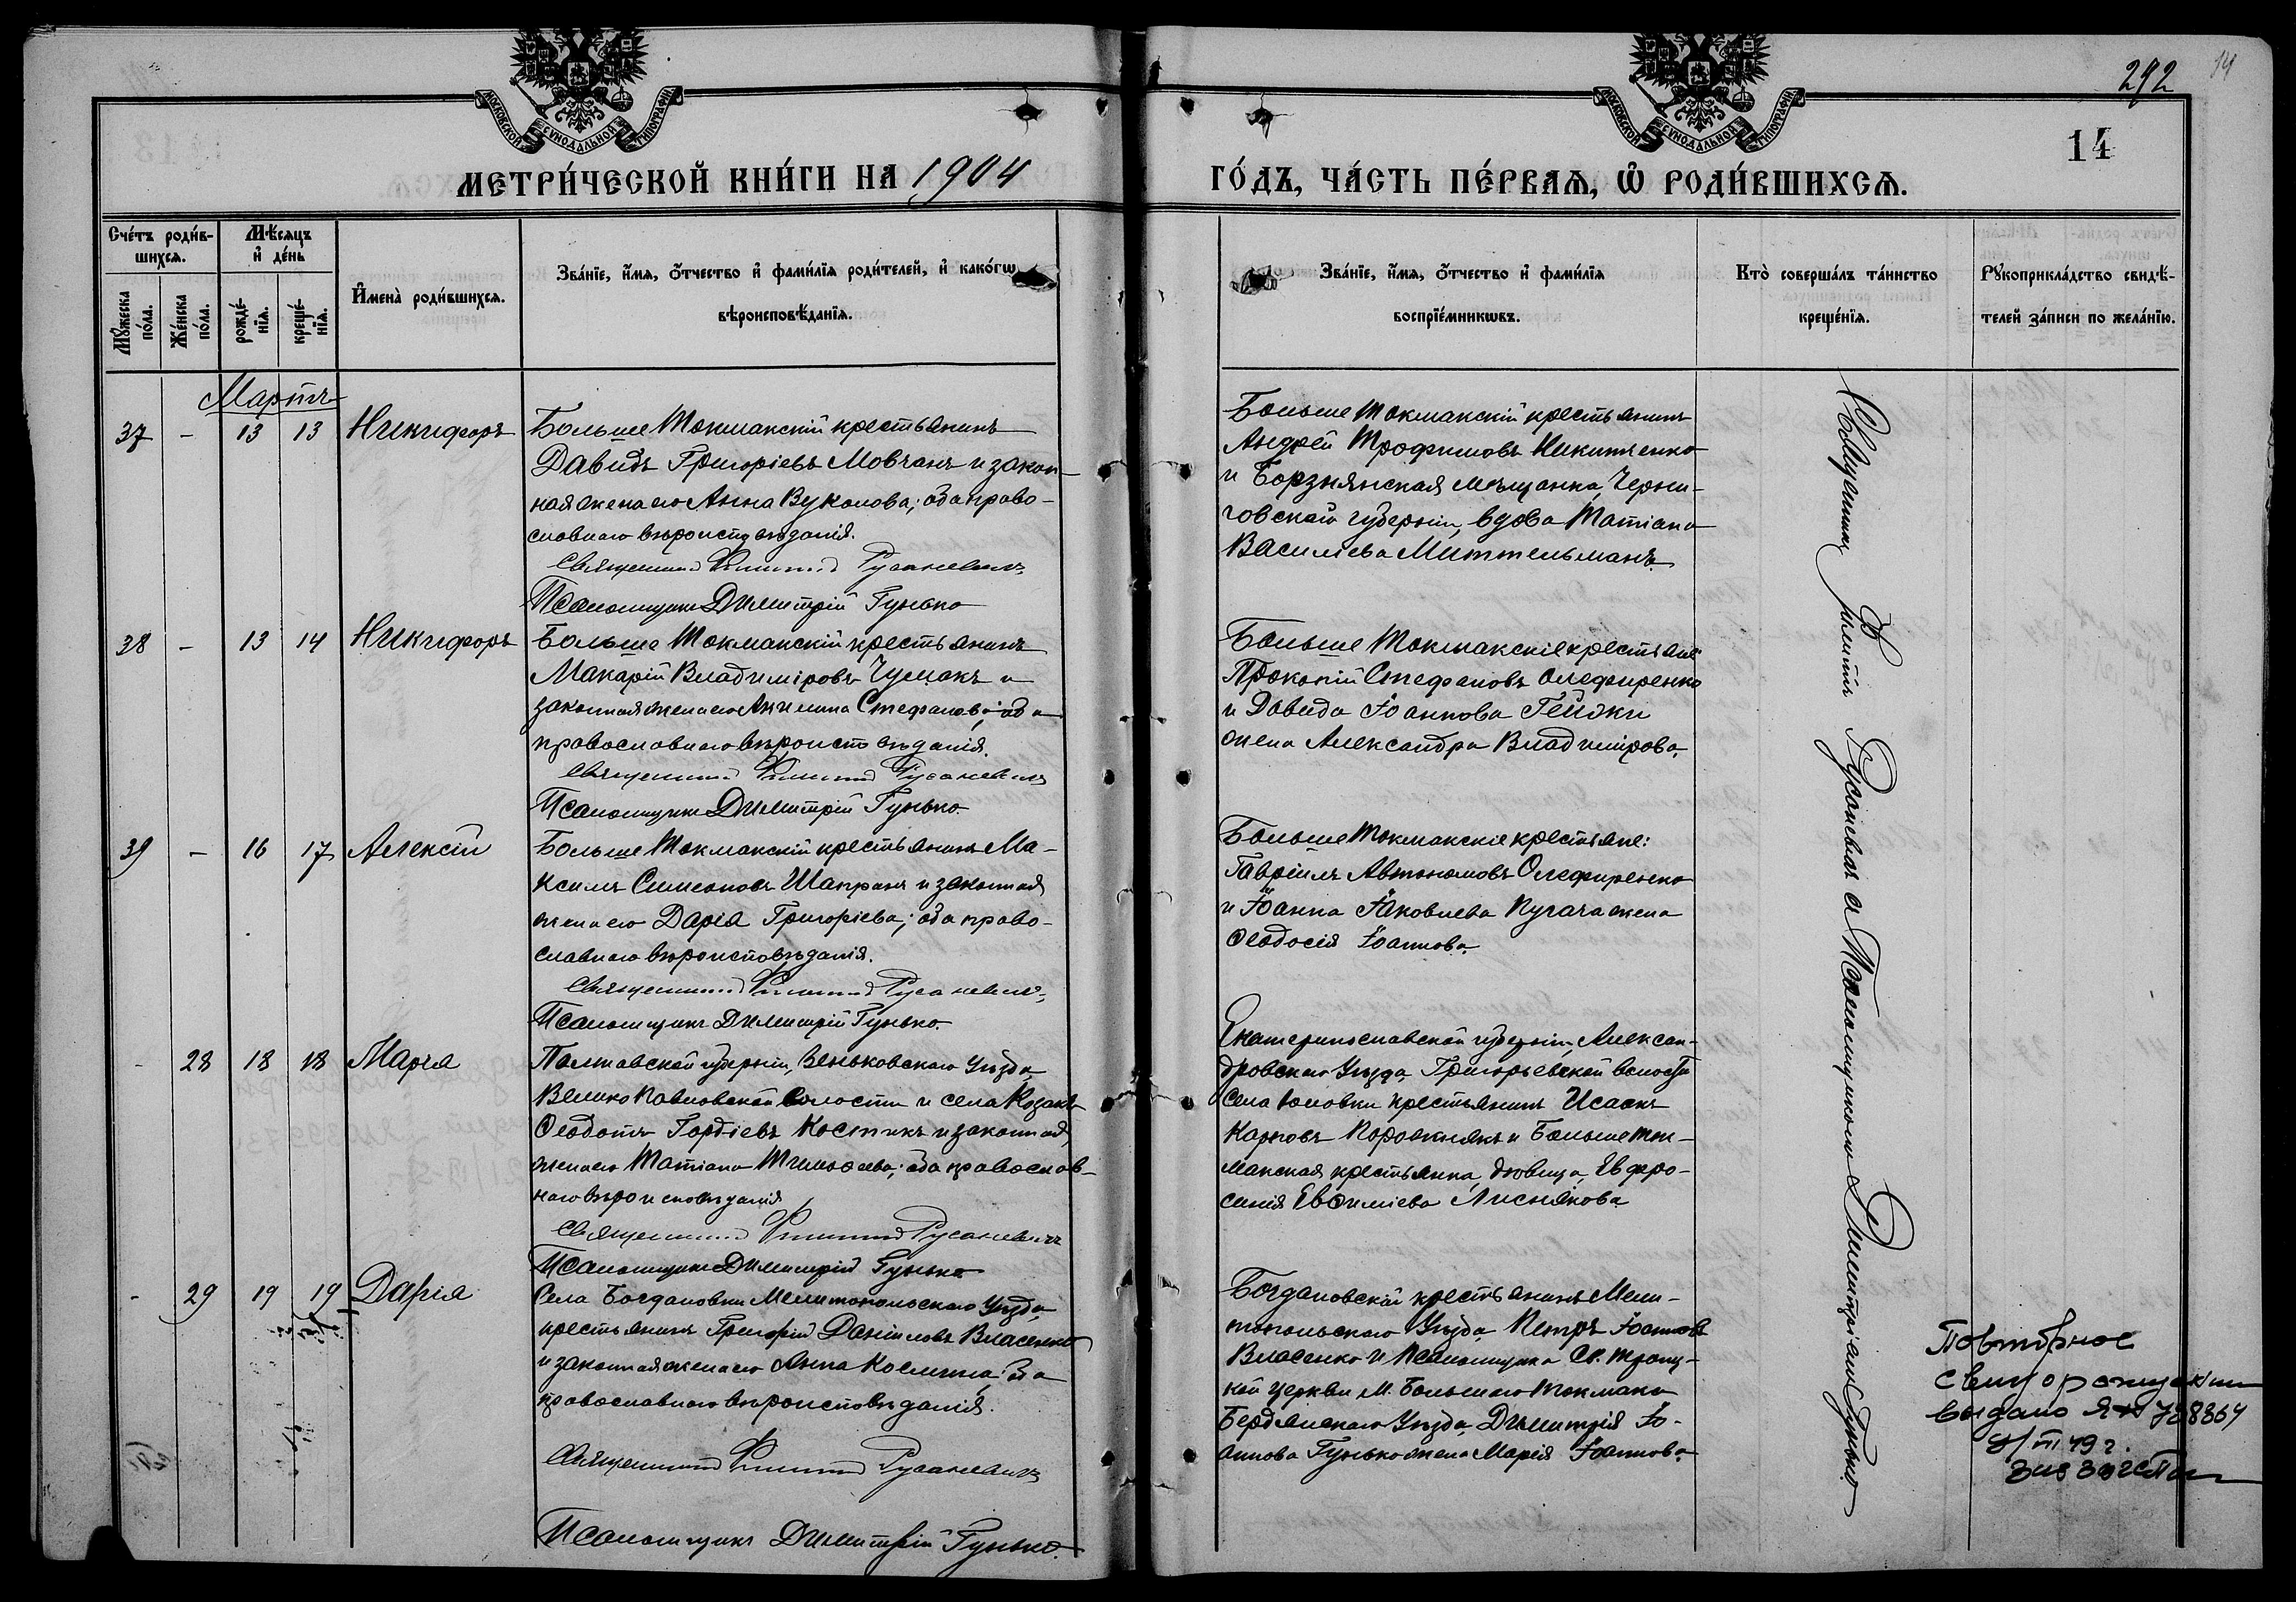 292
14
14
МОСКОВСКОЙ СѴНОДАЛЬНОЙ ТИПОГРАФІИ
МОСКОВСКОЙ СѴНОДАЛЬНОЙ ТИПОГРАФІИ
МЕТРИ́ЧЕСКОЙ КНИ́ГИ НА 1904
ГО́ДЪ, ЧА́СТЬ ПЕ́РВАѦ, Ѽ РОДИ́ВШИХСѦ.
Сче́тъ роди́в-
шихсѧ.
Мꙋ́жеска по́ла.
Же́нска по́ла.
Мѣ́сѧцъ
и҆ де́нь
рожде́-
нїѧ.
креще́-
нїѧ.
И҆мена̀ роди́вшихсѧ.
Зва́нїе, и҆́мѧ, ѻ҆́тчество и҆ фами́лїѧ роди́телей, и҆ како́гѡ
вѣроисповѣ́данїѧ.
Зва́нїе, и҆́мѧ, ѻ҆́тчество и҆ фами́лїѧ
воспрїе́мникѡвъ.
Кто̀ соверша́лъ та́инство
креще́нїѧ.
Рꙋкоприкла́дство свидѣ́-
телей за́писи по жела́нїю.
Мартъ
37 - 13 13 Никифоръ
Больше Токмакскій крестьянинъ
Давидъ Григоріевъ Мовчанъ и закон-
ная жена его Анна Вуколова; оба право-
славнаго вѣроисповѣданія.
Священникъ Филиппъ Русаневичъ
Псаломщикъ Димитрій Гунько
Больше Токмакскій крестьянинъ
Андрей Трофимовъ Никитченко
и Борзнянская мѣщанка, Черни-
говской губерніи, вдова Татіана
Василіева Миттельманъ.
38 - 13 14 Никифоръ
Больше Токмакскій крестьянинъ
Макарій Владиміровъ Чумакъ и
законная жена его Акилина Стефанова; оба
православнаго вѣроисповѣданія.
Священникъ Филиппъ Русаневичъ
Псаломщикъ Димитрій Гунько.
Больше Токмакскіе крестьяне
Прокопій Стефановъ Олефиренко
и Давида Іоаннова Гейжи
жена Александра Владимірова.
39 - 16 17 Алексій
Больше Токмакскій крестьянинъ Ма-
ксимъ Симеоновъ Шапранъ и законная
жена его Дарія Григоріева; оба право-
славнаго вѣроисповѣданія.
Священникъ Филиппъ Русаневичъ
Псаломщикъ Димитрій Гунько.
Больше Токмакскіе крестьяне:
Гавріилъ Автономовъ Олефиренко
и Іоанна Іаковлева Пугача жена
Ѳеодосія Іоаннова.
- 28 18 18 Марія
Полтавской губерніи, Зеньковскаго Уѣзда,
Велико Павловской волости и села Козакъ
Ѳеодотъ Гордіевъ Костикъ и законная
жена его Татіана Тимоѳеева; оба православ-
наго вѣроисповѣданія
Священникъ Филиппъ Русаневичъ
Псаломщикъ Димитрій Гунько
Екатеринославской губерніи, Алексан-
дровскаго Уѣзда, Григорьевской волости
села крестьянинъ Исаакъ
Карповъ Порожнякъ и Больше Ток-
макская крестьянка, дѣвица, Евфро-
синія Евѳиміева Лиснякова.
- 29 19 19 Дарія
Села Богдановки Мелитопольскаго Уѣзда,
крестьянинъ Григорій Даніиловъ Власенко
и законная жена его Анна Космина; оба
православнаго вѣроисповѣданія.
Священникъ Филиппъ Русаневичъ
Псаломщикъ Димитрій Гунько.
Богдановскій крестьянинъ Мели-
топольскаго Уѣзда Петръ Іоанновъ
Власенко и псаломщика Св. Троиц-
кой церкви М. Большаго Токмака
Бердянскаго Уѣзда, Димитрія Іо-
аннова Гунько жена Марія Іоаннова.
Священникъ Филиппъ Русаневичъ съ Псаломщикомъ Димитріемъ Гунько
Повторное
свид о рожден
выдано ЯЮ 788364
III 49 г.